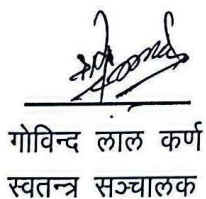 गोविन्द लाल कर्ण
स्वतन्त्र सञ्चालक